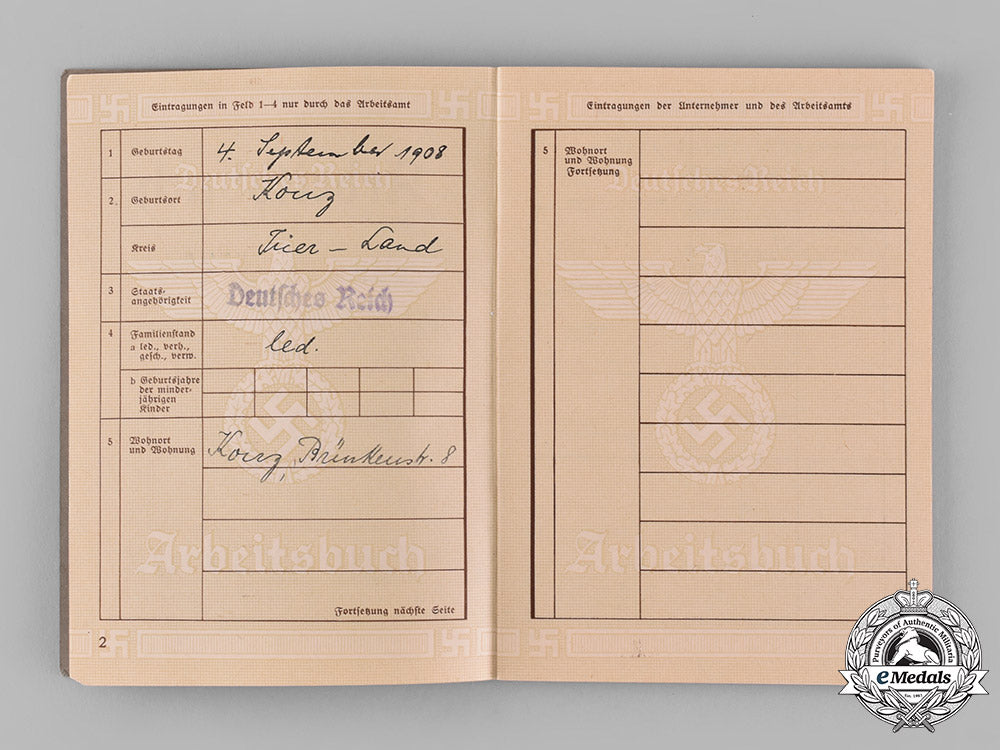 Eintragungen in Feld 1–4 nur durch das Arbeitsamt
1 Geburtstag 4. September 1908
Deutsches Reich
2. Geburtsort Konz
Kreis Trier – Land
3 Staats-
angehörigkeit Deutsches Reich
4 Familienstand
a led., verh.,
gesch., verw. led.
b Geburtsjahre
der minder-
jährigen
Kinder
5 Wohnort
und Wohnung Konz, Brückenstr. 8
Arbeitsbuch
Fortsetzung nächste Seite
2
Eintragungen der Unternehmer und des Arbeitsamts
5 Wohnort
und Wohnung
Fortsetzung
Deutsches Reich
Arbeitsbuch
Purveyors of Authentic Militaria
eMedals